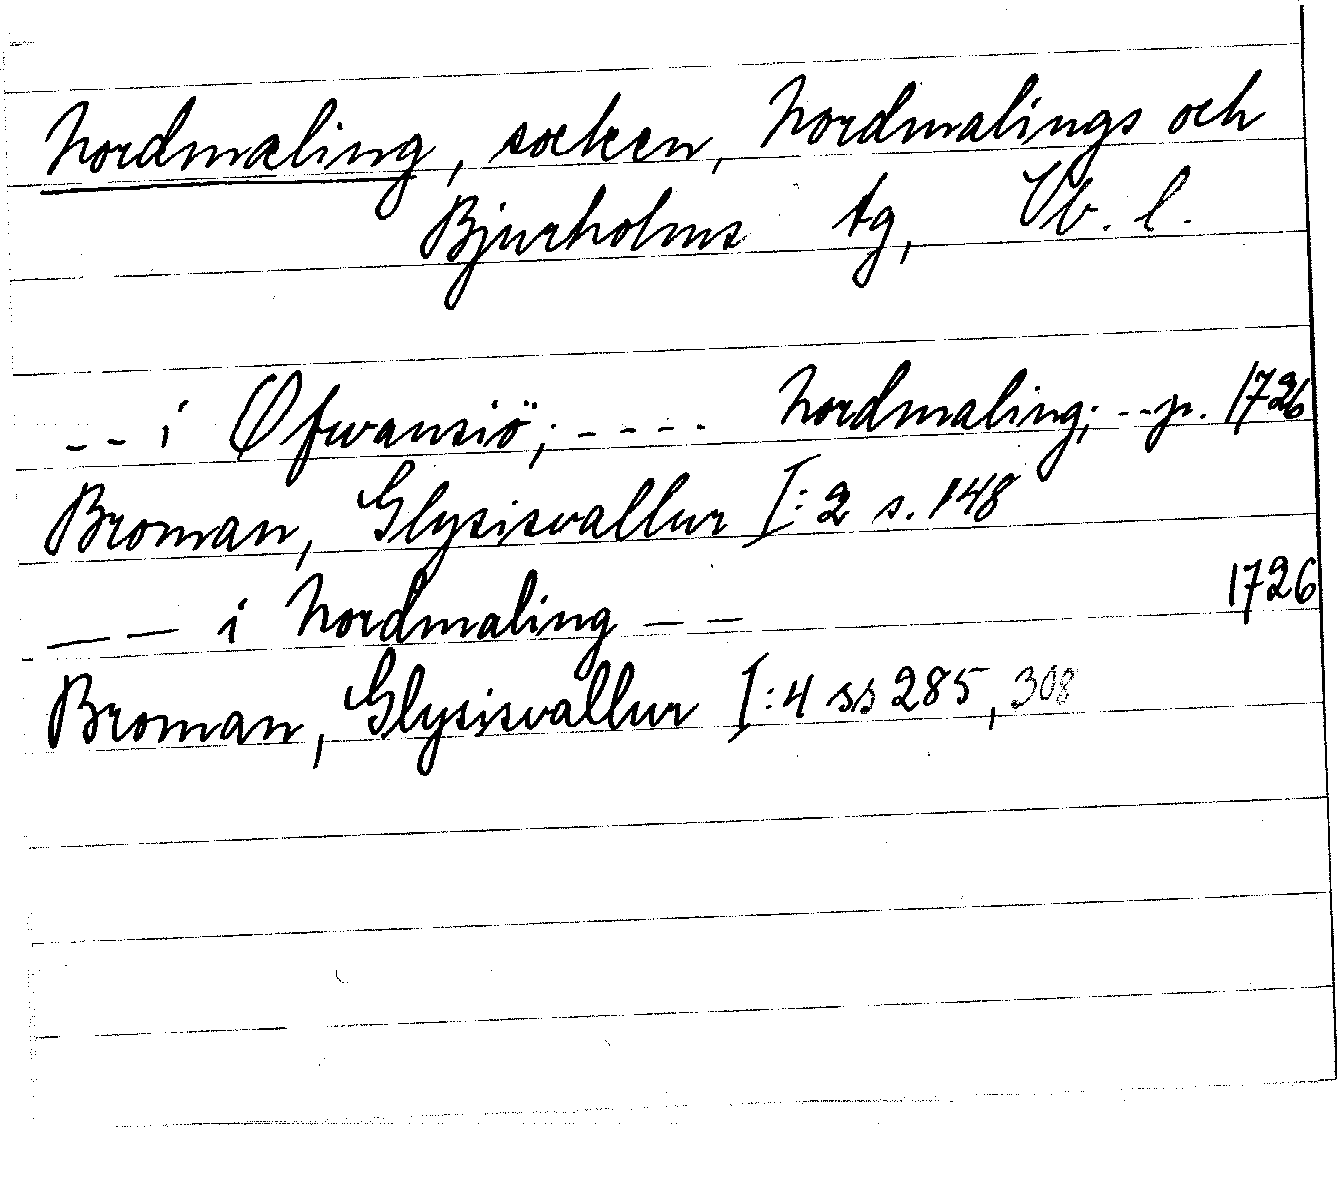 Nordmaling, socken, Nordmalings och
Bjurholms tg, Vb. l.
-- i Øfwansiö; ---- Nordmaling; -- p. 1726
Broman, Glysisvallur I:2 s. 148
--- i Nordmaling -- 1726
Broman, Glysisvallur I:4 ss 285, 308